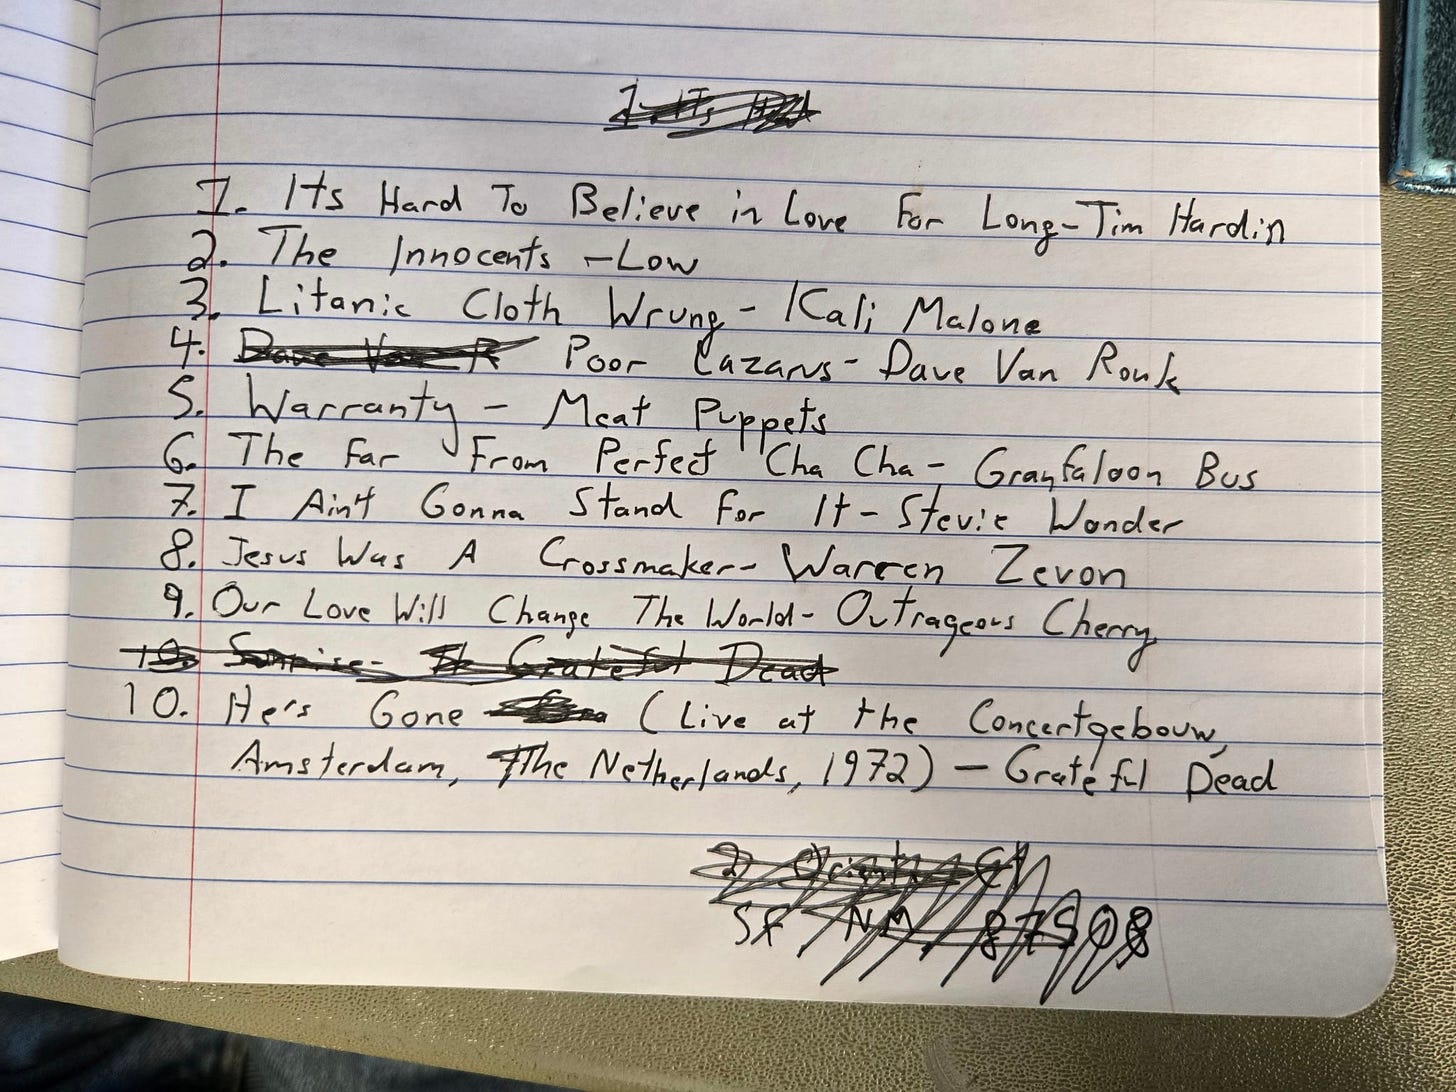 1. Its Hard To Believe in Love For Long-Tim Hardin
2. The Innocents -Low
3. Litanic Cloth Wrung - Kali Malone
4. Dave Van R Poor Lazarus - Dave Van Ronk
5. Warranty - Meat Puppets
6. The Far From Perfect Cha Cha - Granfaloon Bus
7. I Ain't Gonna Stand For It - Stevie Wonder
8. Jesus Was A Crossmaker- Warren Zevon
9. Our Love Will Change The World- Outrageous Cherry
10. Sunrise- Grateful Dead
10. He's Gone (Live at the Concertgebouw,
Amsterdam, The Netherlands, 1972) - Grateful Dead
SF NM 87508